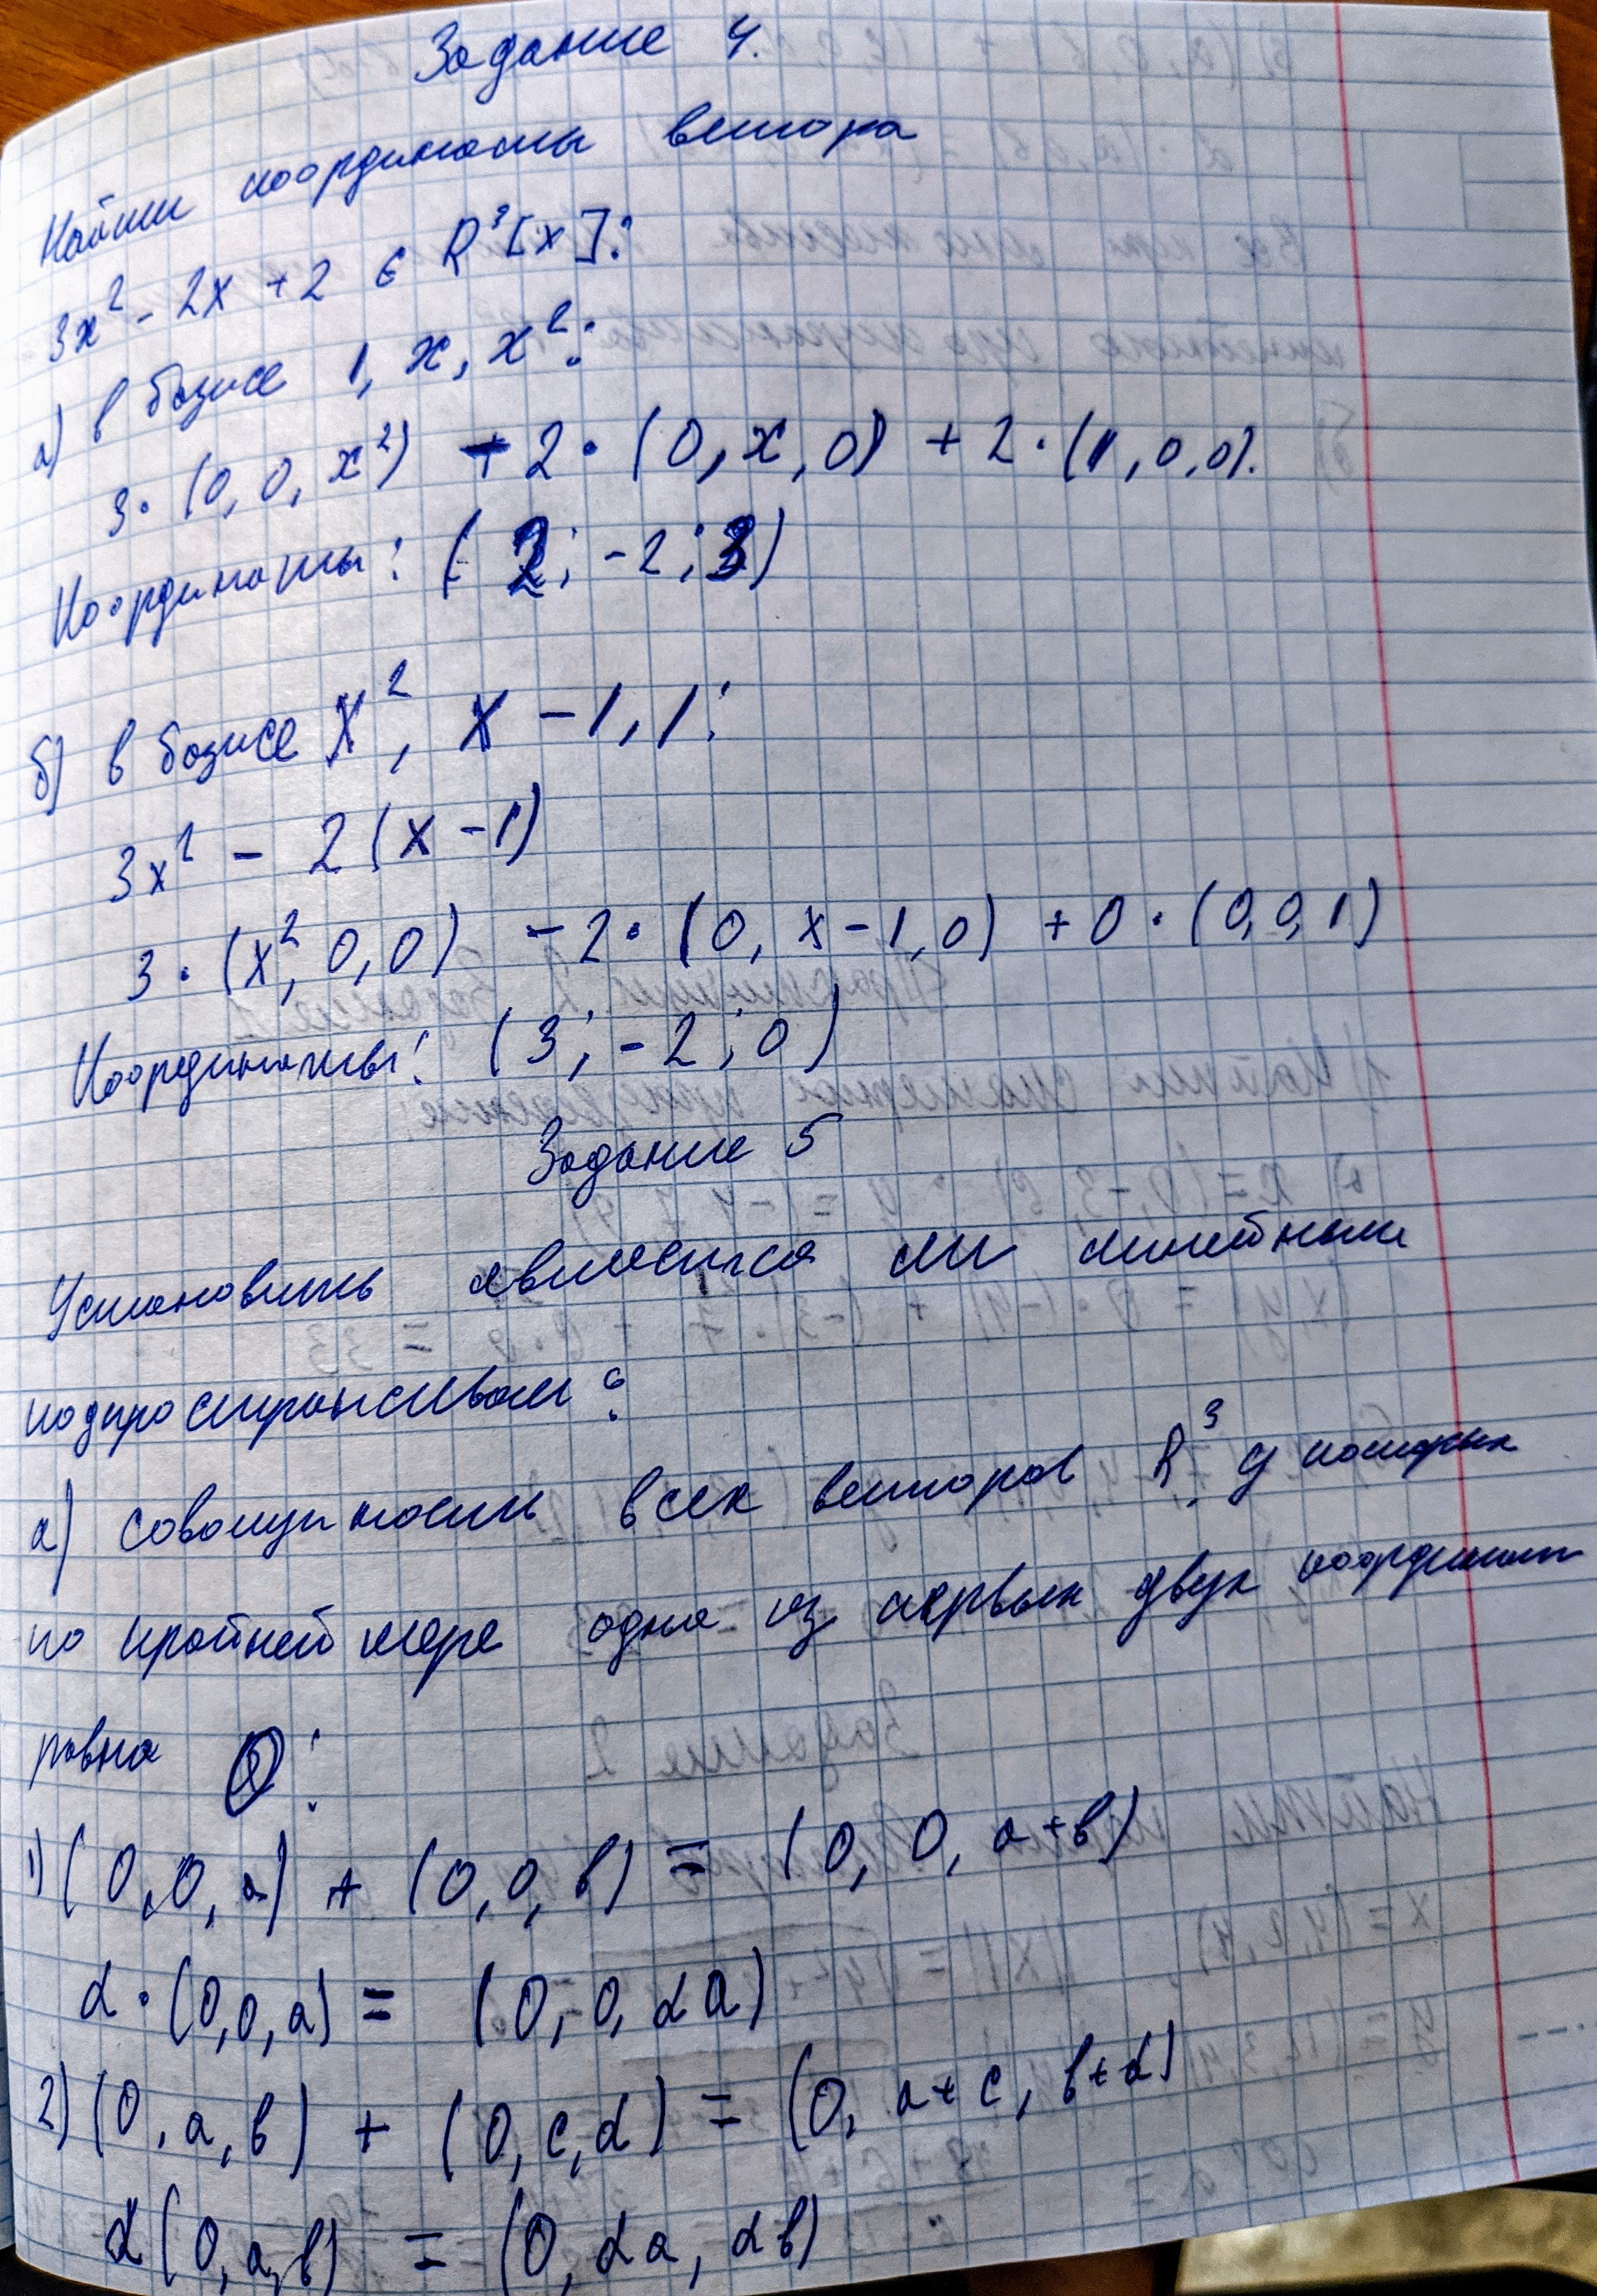 Задание 4.
Найти координаты вектора
3x² - 2x + 2 ∈ R³[x]:
а) в базисе 1, x, x²:
3·(0, 0, x²) - 2·(0, x, 0) + 2·(1, 0, 0).
Координаты: (2; -2; 3)
б) в базисе x², x - 1, 1:
3x² - 2(x - 1)
3·(x², 0, 0) - 2·(0, x - 1, 0) + 0·(0, 0, 1)
Координаты: (3; -2; 0)
Задание 5
Установить является ли линейным
подпространством:
а) совокупность всех векторов R³, у которых
по крайней мере одна из первых двух координат
равна 0:
1) (0, 0, a) + (0, 0, b) = (0, 0, a+b)
α·(0, 0, a) = (0, 0, αa)
2) (0, a, b) + (0, c, d) = (0, a+c, b+d)
α(0, a, b) = (0, αa, αb)